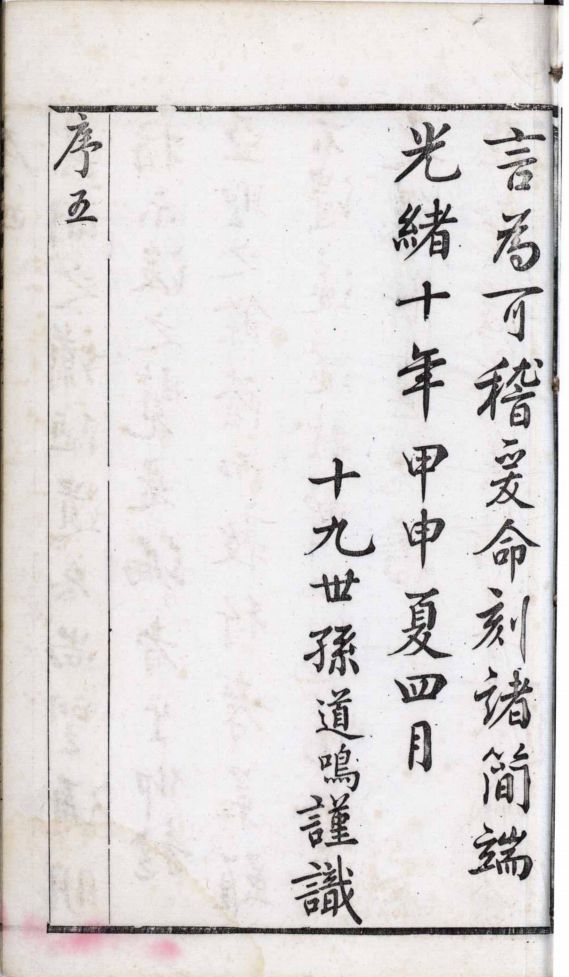 言為可稽爰命刻諸簡端
光緒十年甲申夏四月
十九世孫道鳴謹識
序五